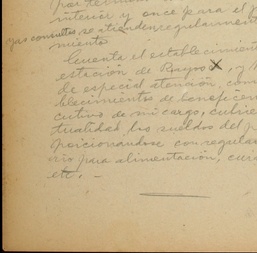 por termino
interior y once para el
yas consultas se atienden regularment
miento
Cuenta el establecimien
estación de Rayos X, y
de especial atención, com
blecimientos de beneficen
cutivo de mi cargo, cubrie
tualidad los sueldos del p
porcionandose con regular
rio para alimentación, cura
etc. —